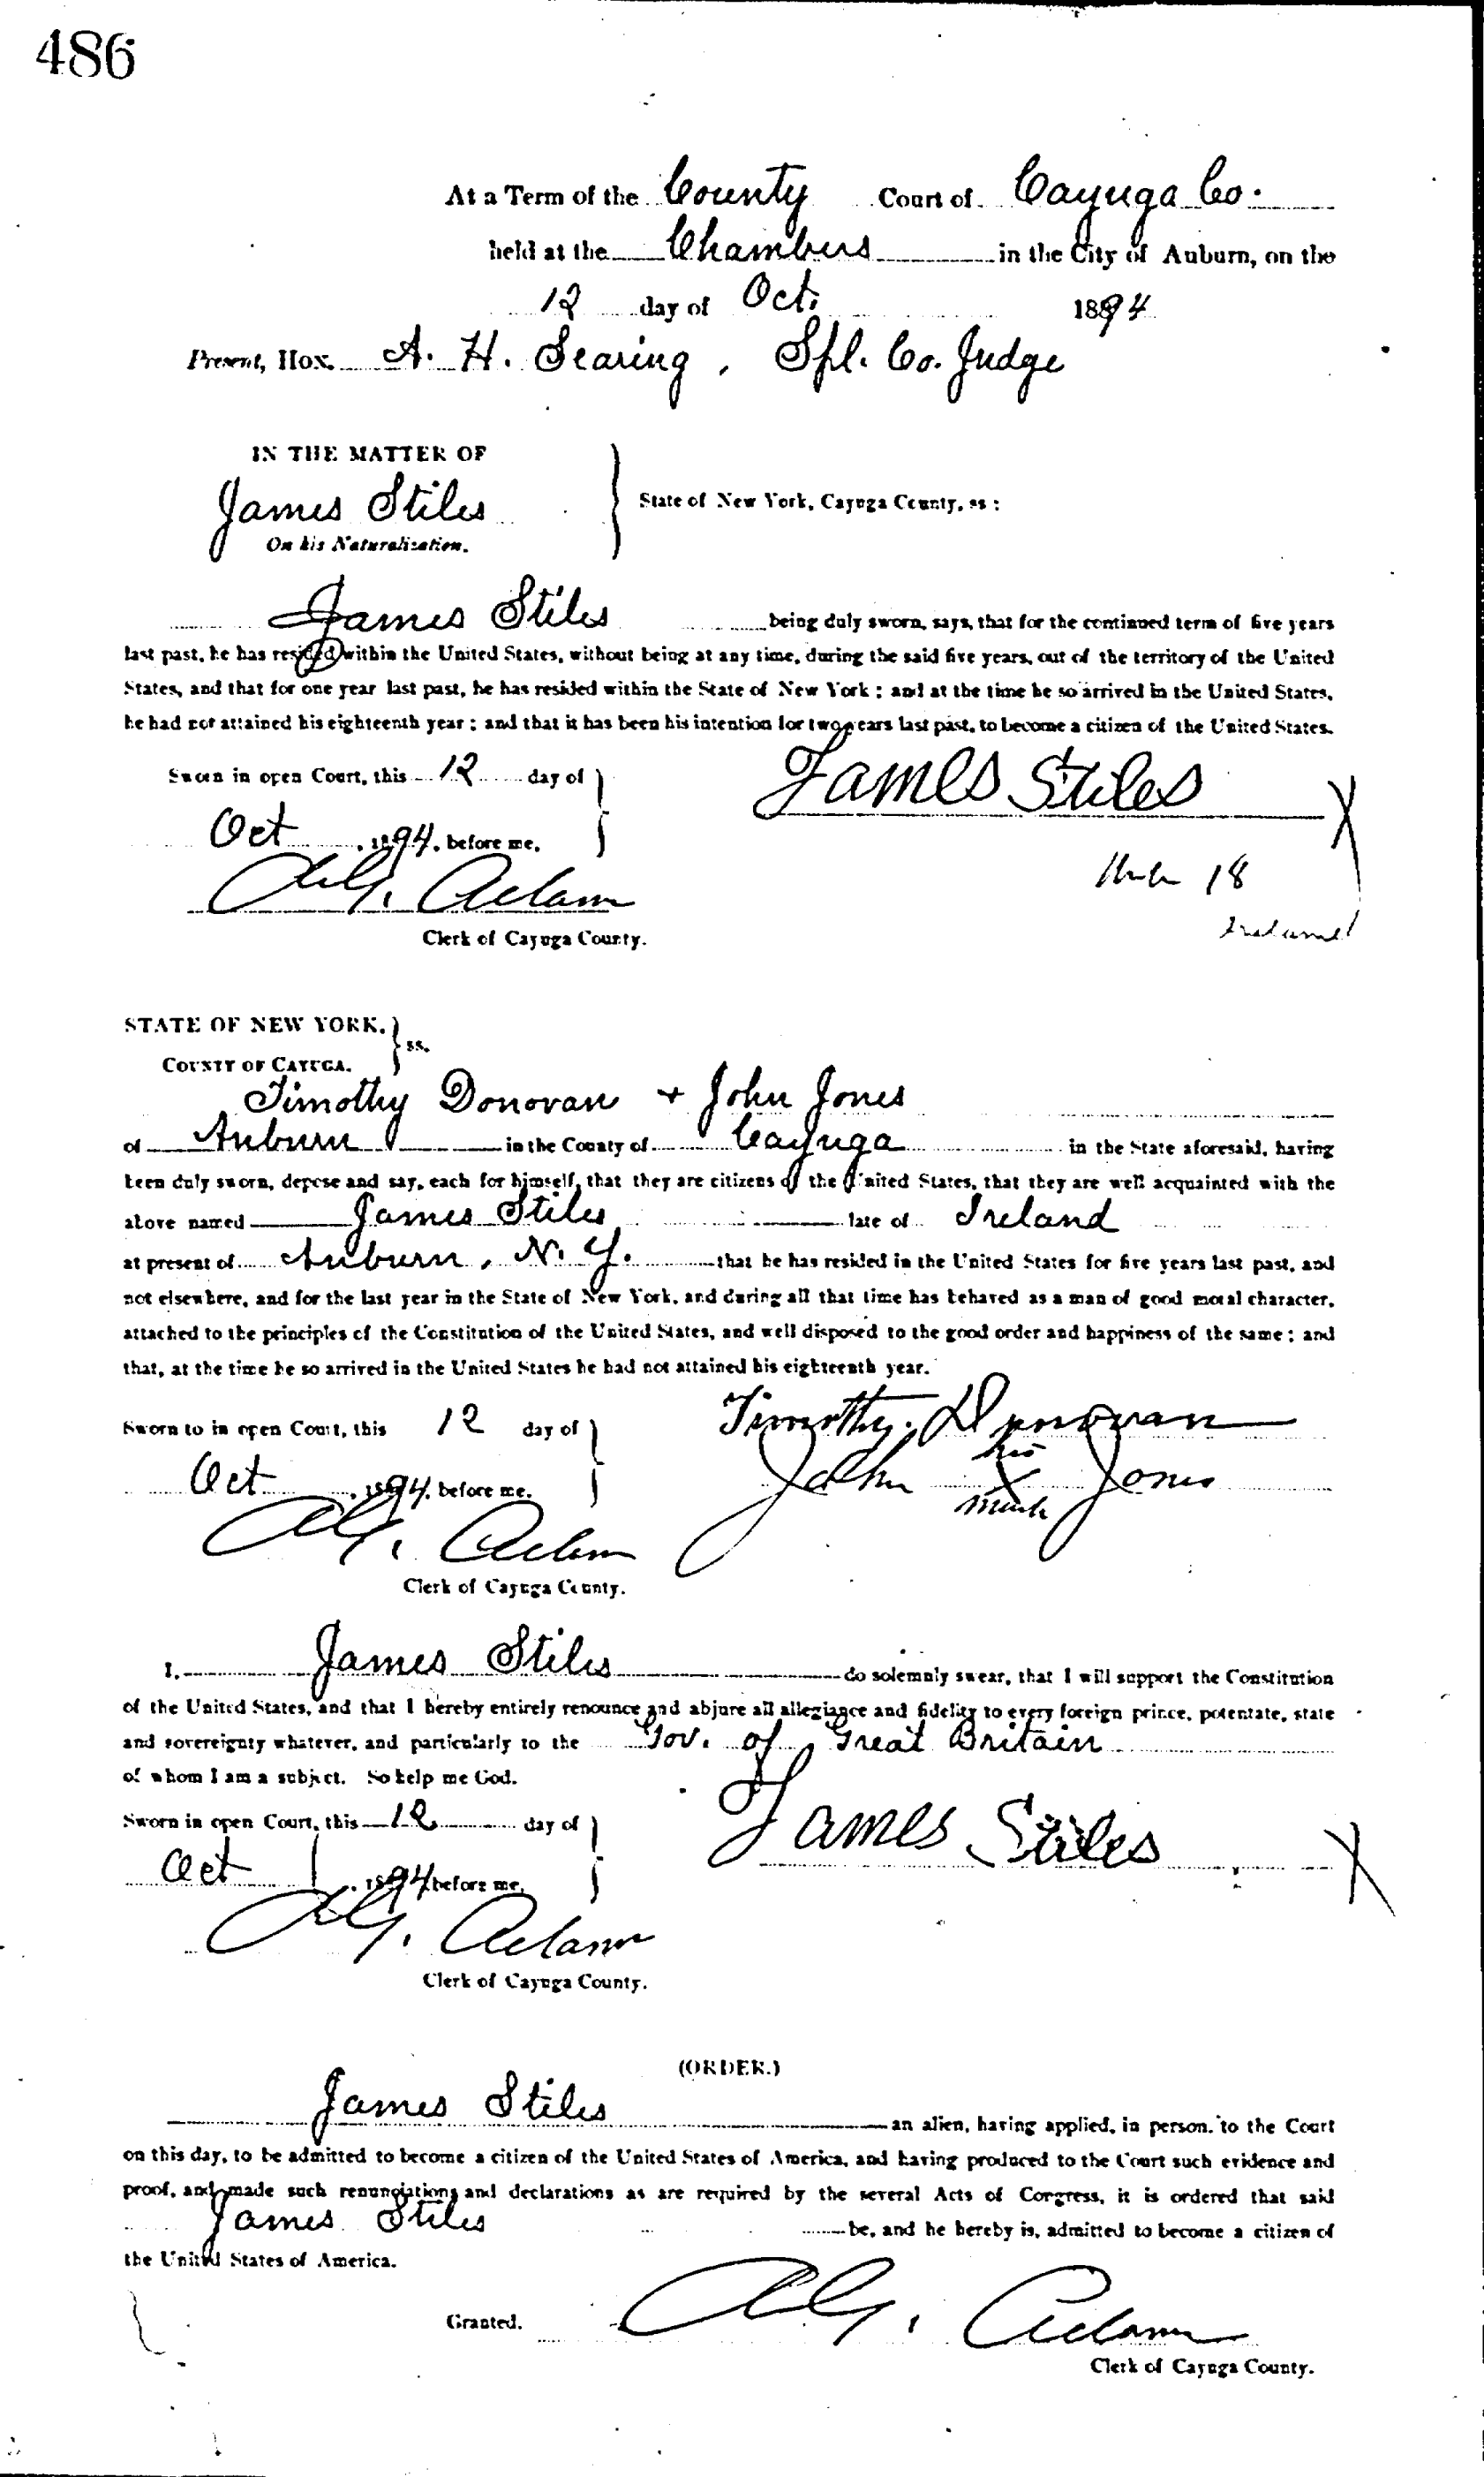 486
At a Term of the County Court of Cayuga Co.
held at the Chambers in the City of Auburn, on the
12 day of Oct. 1894
Present, Hon. A. H. Searing, Spl. Co. Judge
IN THE MATTER OF
James Stiles
On his Naturalization.
State of New York, Cayuga County, ss:
James Stiles being duly sworn, says, that for the continued term of five years
last past, he has resided within the United States, without being at any time, during the said five years, out of the territory of the United
States, and that for one year last past, he has resided within the State of New York; and at the time he so arrived in the United States,
he had not attained his eighteenth year; and that it has been his intention for two years last past, to become a citizen of the United States.
Sworn in open Court, this 12 day of
Oct, 1894, before me,
James Stiles X
18
Ireland
Clerk of Cayuga County.
STATE OF NEW YORK,
COUNTY OF CAYUGA. ss.
Timothy Donovan + John Jones
of Auburn in the County of Cayuga in the State aforesaid, having
been duly sworn, depose and say, each for himself, that they are citizens of the United States, that they are well acquainted with the
above named James Stiles late of Ireland
at present of Auburn, N. Y. that he has resided in the United States for five years last past, and
not elsewhere, and for the last year in the State of New York, and during all that time has behaved as a man of good moral character,
attached to the principles of the Constitution of the United States, and well disposed to the good order and happiness of the same; and
that, at the time he so arrived in the United States he had not attained his eighteenth year.
Sworn to in open Court, this 12 day of
Oct, 1894, before me.
Timothy Donovan
his
John X Jones
mark
Clerk of Cayuga County.
I, James Stiles do solemnly swear, that I will support the Constitution
of the United States, and that I hereby entirely renounce and abjure all allegiance and fidelity to every foreign prince, potentate, state
and sovereignty whatever, and particularly to the Gov. of Great Britain
of whom I am a subject. So help me God.
Sworn in open Court, this 12 day of
Oct, 1894 before me,
James Stiles X
Clerk of Cayuga County.
(ORDER.)
James Stiles an alien, having applied, in person, to the Court
on this day, to be admitted to become a citizen of the United States of America, and having produced to the Court such evidence and
proof, and made such renunciations and declarations as are required by the several Acts of Congress, it is ordered that said
James Stiles be, and he hereby is, admitted to become a citizen of
the United States of America.
Granted.
Clerk of Cayuga County.